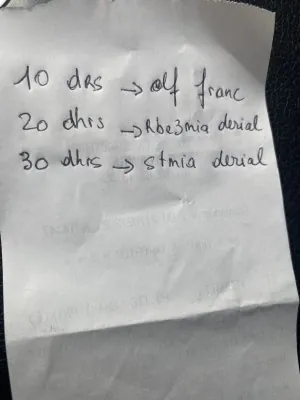 10 dhs → alf franc
20 dhrs → Rbe3mia derial
30 dhrs → stmia derial